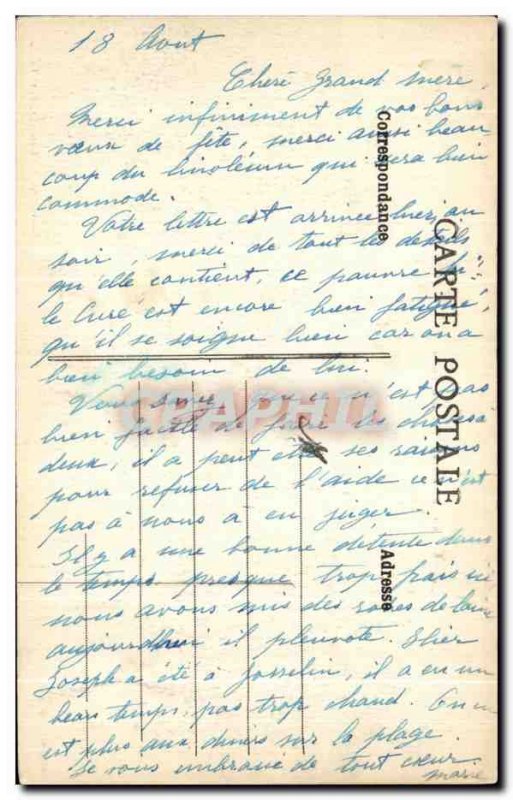 18 Aout
Cheré Grand mère,
Merci infiniment de vos bons
vœux de fête, merci aussi beau
coup du linoléum qui sera bien
commode.
Votre lettre est arrivée hier au
soir, merci de tout les details
qu'elle contient, ce pauvre
le Curé est encore bien fatigué,
qu'il se soigne bien car on a
bien besoin de lui.
Vous savez n'est pas
bien facile de faire les choses a
deux, il a peut etre ses raisons
pour refuser de l'aide ce n'est
pas à nous a en juger.
Il y a une bonne détente dans
le temps presque trop frais ici
nous avons mis des robes de laine
aujourdhui il pleuvote. Hier
Joseph a été à Josselin, il a eu un
beau temps, pas trop chaud. On n
est plus aux diners sur la plage.
Je vous embrasse de tout cœur
CARTE POSTALE
Correspondance
Adresse
M
CPAPHIL